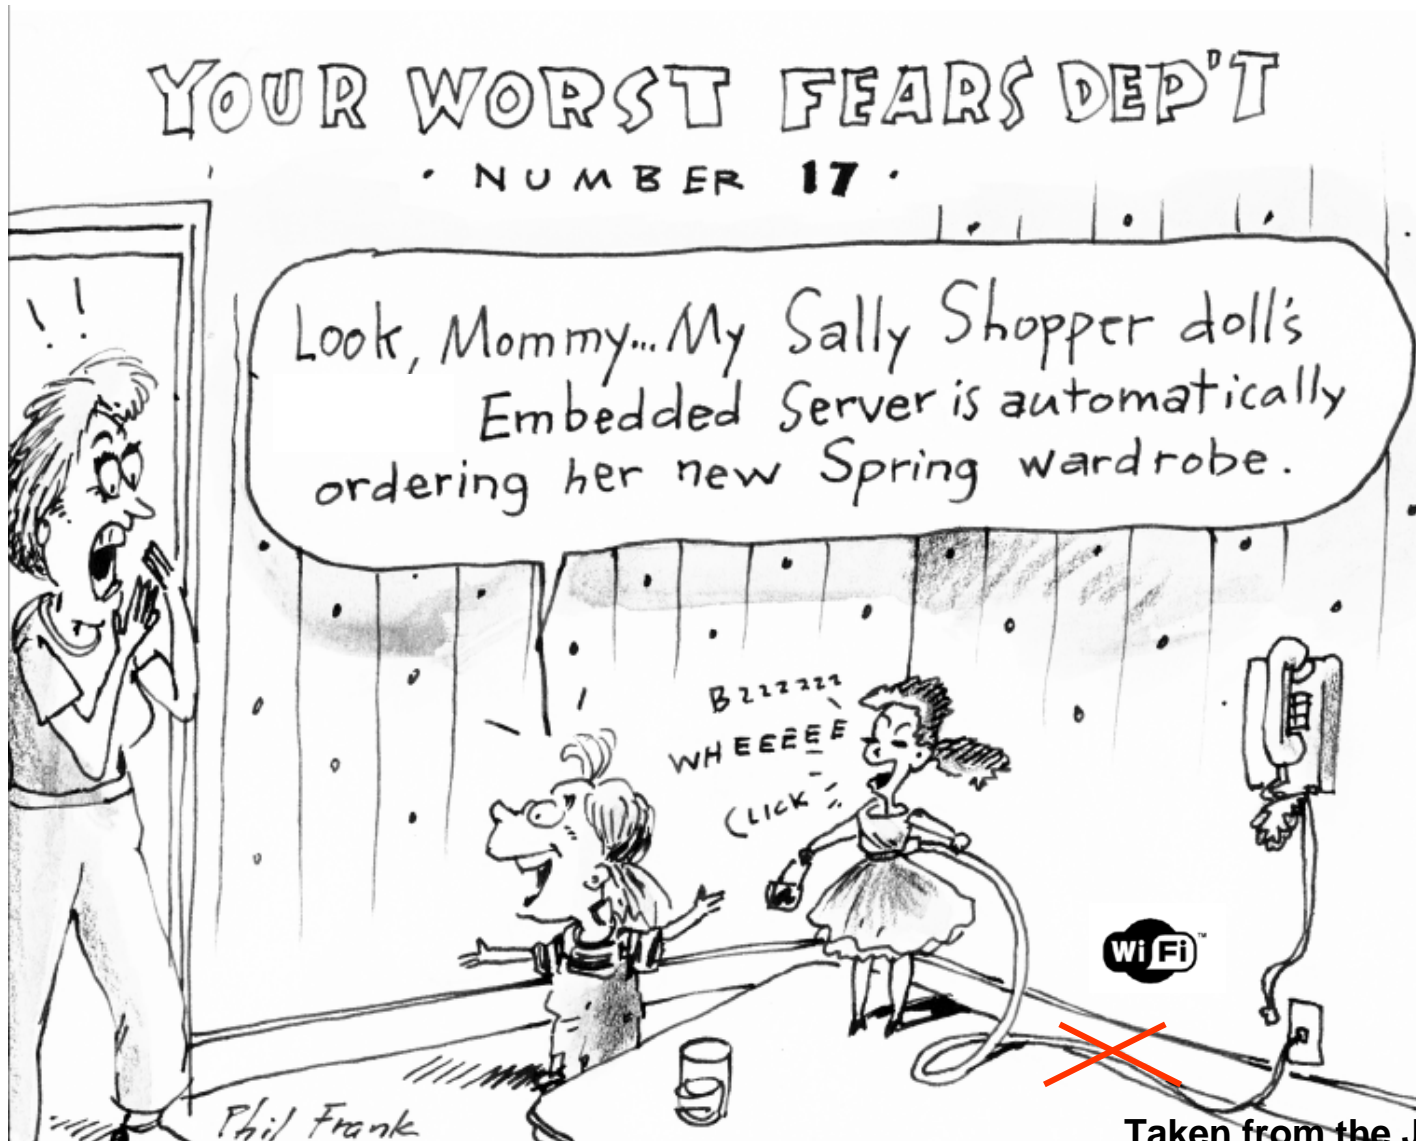 YOUR WORST FEARS DEP'T
· NUMBER 17 ·
! !
Look, Mommy...My Sally Shopper doll's
Embedded Server is automatically
ordering her new Spring wardrobe.
Bzzzzzzz
WHEEEEE
CLICK
Wi Fi™
Phil Frank
Taken from the